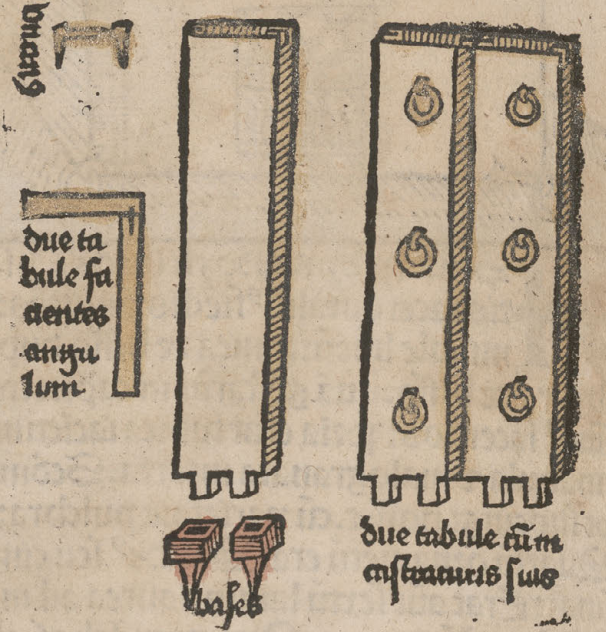 due ta
bule fa
cientes
angu
lum
bases
due tabule cū m
castraturis suis